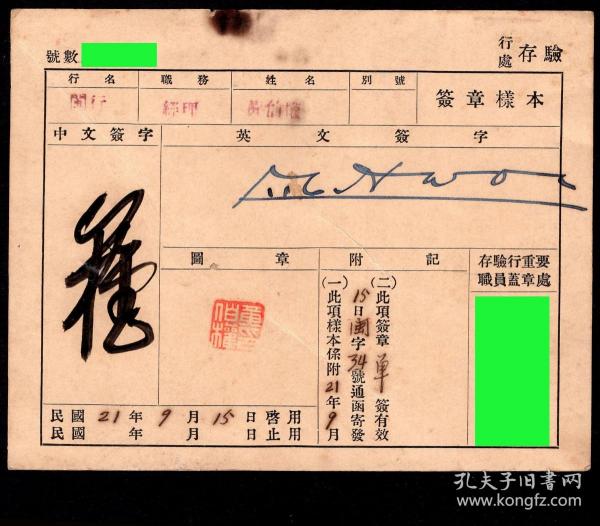 號數
行處存驗
行名
職務
姓名
別號
簽章樣本
閩行
經理
中文簽字
英文簽字
圖章
附記
存驗行重要職員蓋章處
(一)此項樣本係附21年9月
15日閩字34號通函寄發
(二)此項簽章單簽有效
民國21年9月15日啓用
民國 年 月 日止用
孔夫子旧书网
www.kongfz.com